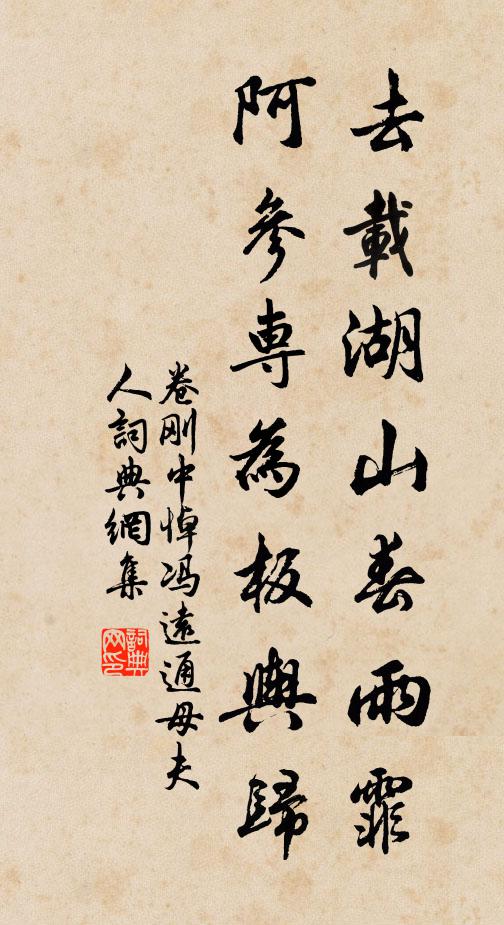 去載湖山春雨霏
阿參専為板輿歸
卷刚中悼冯遠通母夫
人詞典網集
詞典網印